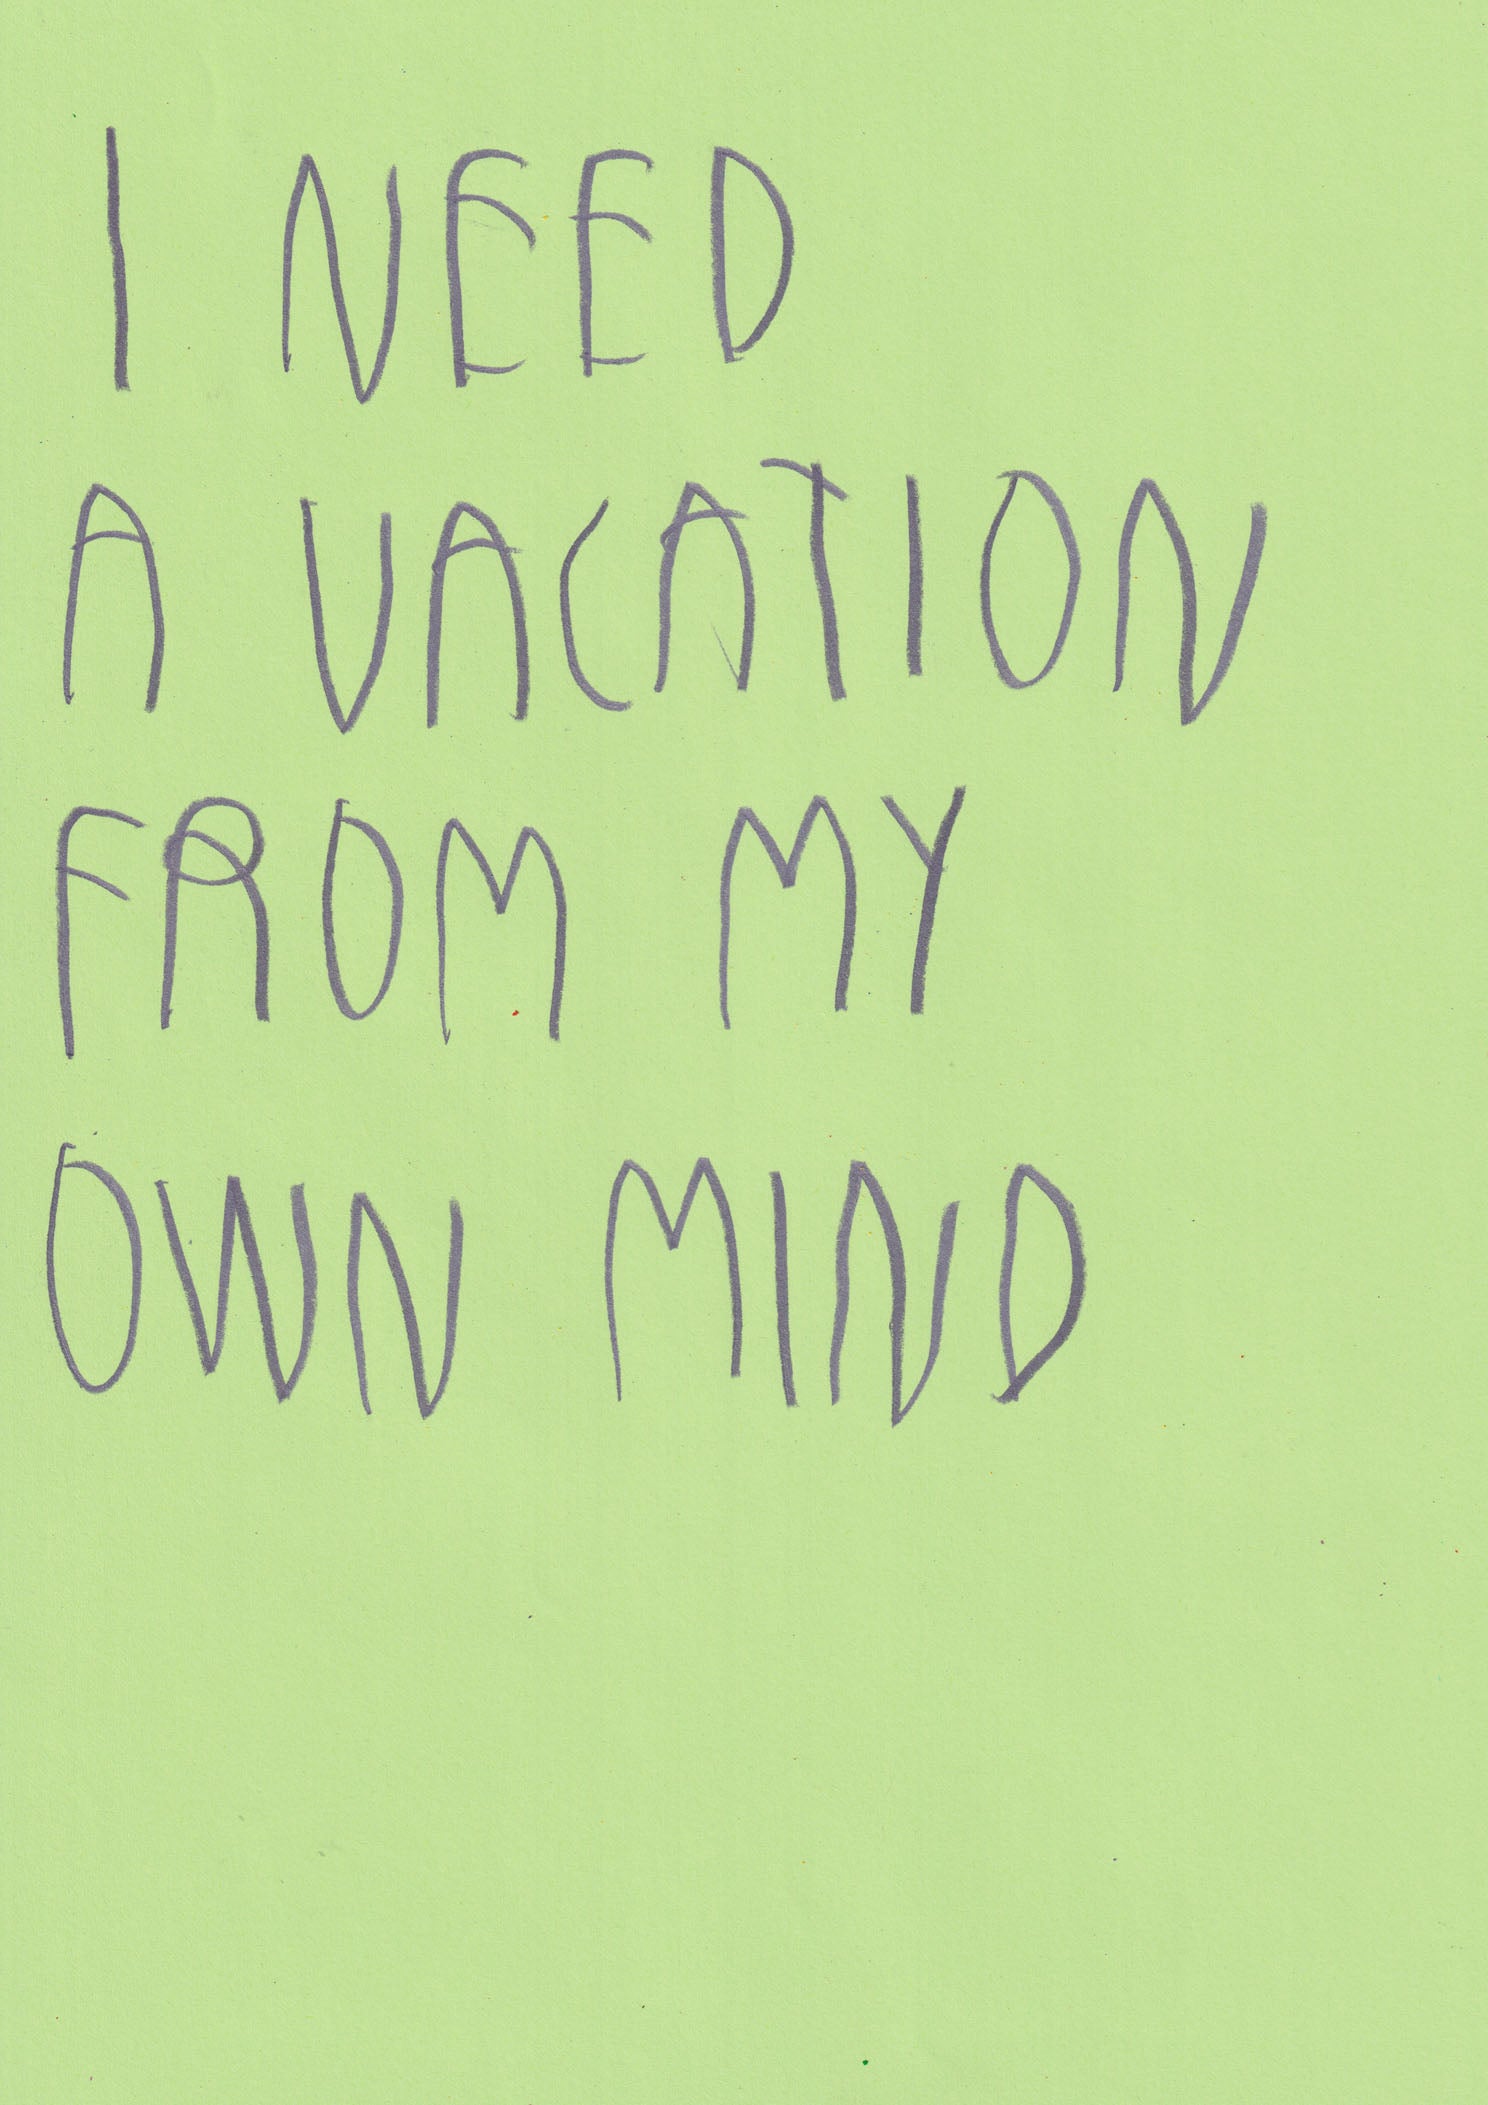 I NEED
A VACATION
FROM MY
OWN MIND